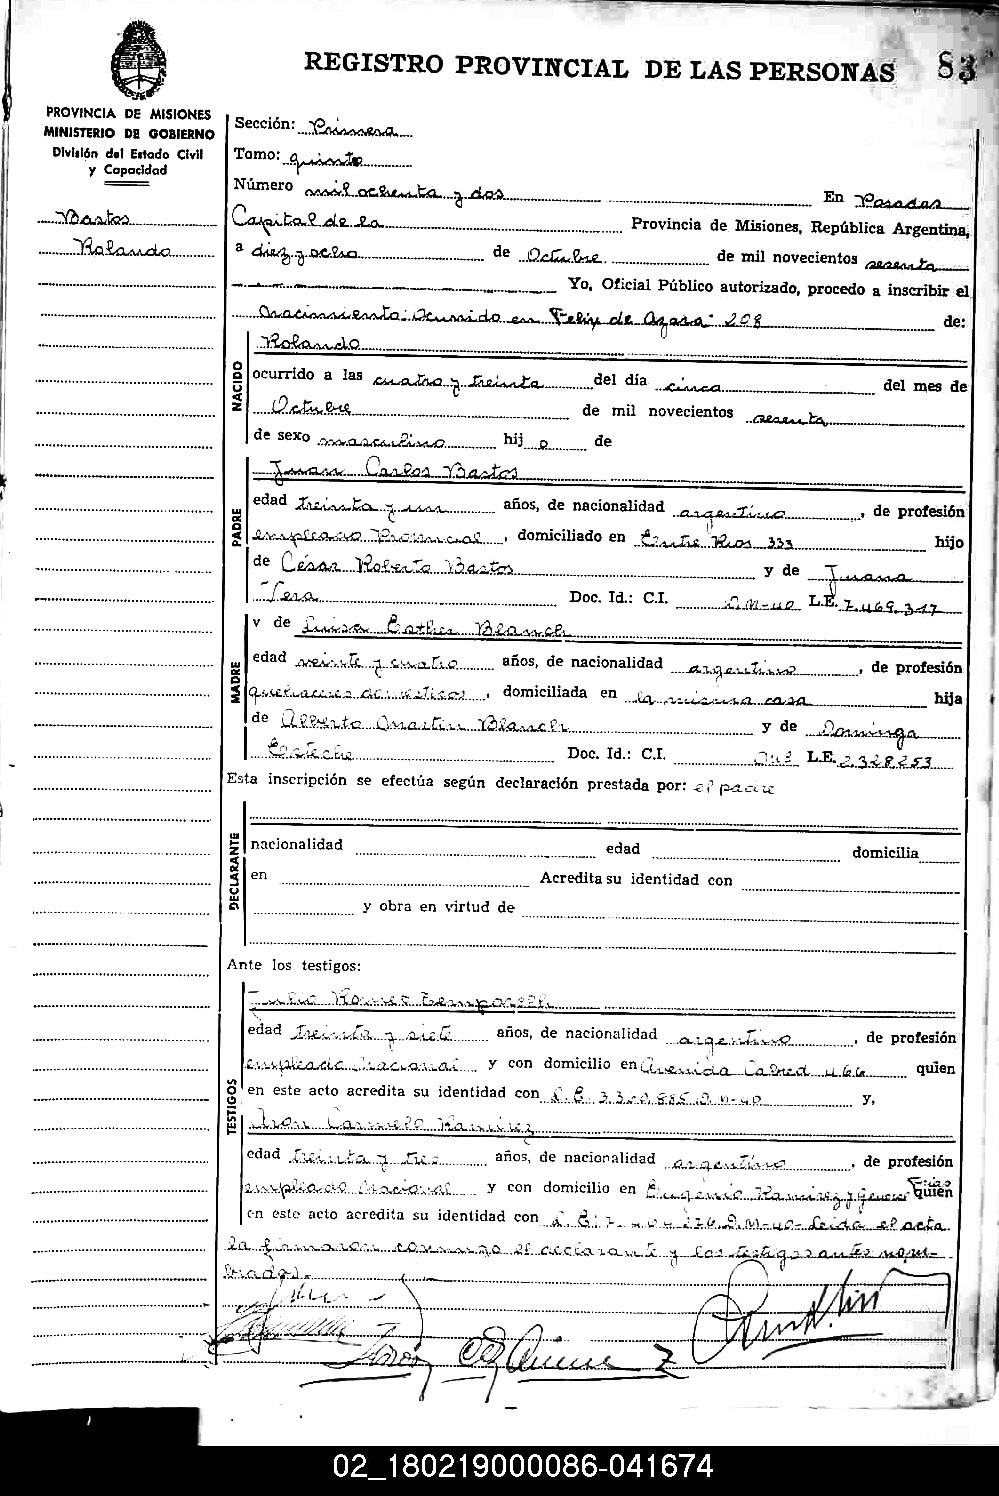 REGISTRO PROVINCIAL DE LAS PERSONAS 83
PROVINCIA DE MISIONES
MINISTERIO DE GOBIERNO
División del Estado Civil
y Capacidad
Bastos
Rolando
Sección: Primera
Tomo: quinto
Número mil ochenta y dos En Posadas
Capital de la Provincia de Misiones, República Argentina,
a diez y ocho de Octubre de mil novecientos sesenta
Yo, Oficial Público autorizado, procedo a inscribir el
nacimiento: Ocurrido en Felix de Azara 208 de:
NACIDO
Rolando
ocurrido a las cuatro y treinta del día cinco del mes de
Octubre de mil novecientos sesenta
de sexo masculino hijo de
PADRE
Juan Carlos Bastos
edad treinta y un años, de nacionalidad argentino, de profesión
empleado Provincial, domiciliado en Entre Rios 333 hijo
de César Roberto Bastos y de Juana
Vera Doc. Id.: C.I. D.M-40 L.E. 7.469.317
MADRE
y de Luisa Esther Blanch
edad veinte y cuatro años, de nacionalidad argentino, de profesión
quehaceres domesticos, domiciliada en la misma casa hija
de Alberto Martin Blanch y de Dominga
Esteche Doc. Id.: C.I. L.E. 2.328.253
Esta inscripción se efectúa según declaración prestada por: el padre
DECLARANTE
nacionalidad edad domicilia
en Acredita su identidad con
y obra en virtud de
Ante los testigos:
TESTIGOS
Julio
edad treinta y siete años, de nacionalidad argentino, de profesión
empleado nacional y con domicilio en Avenida Cabred 466 quien
en este acto acredita su identidad con L.E. D.M-40 y,
Carmelo Ramirez
edad treinta y tres años, de nacionalidad argentino, de profesión
empleado nacional y con domicilio en Eugenio Ramirez y Frias quien
en este acto acredita su identidad con L.E. D.M-40- Leida el acta
la firmaron conmigo el declarante y los testigos antes nom-
brados.
02_180219000086-041674